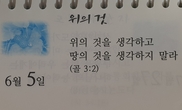 위의 것
위의 것을 생각하고
땅의 것을 생각하지 말라
(골 3:2)
6월 5일